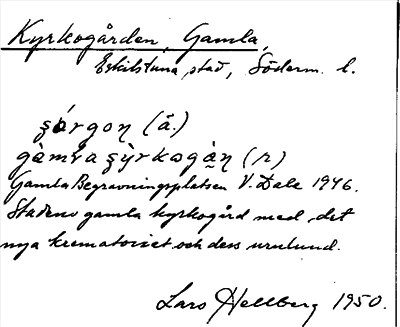 Kyrkogården, Gamla,
Eskilstuna, stad, Söderm. l.
şárgoņ (ä.)
gàmɫa şỳrkogàņ (r)
Gamla Begravningsplatsen V. Dale 1946.
Stadens gamla kyrkogård med det
nya krematoriet och dess urnlund.
Lars Hellberg 1950.